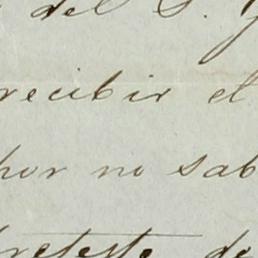 del S.
recibir el
por no sab
pretesto de